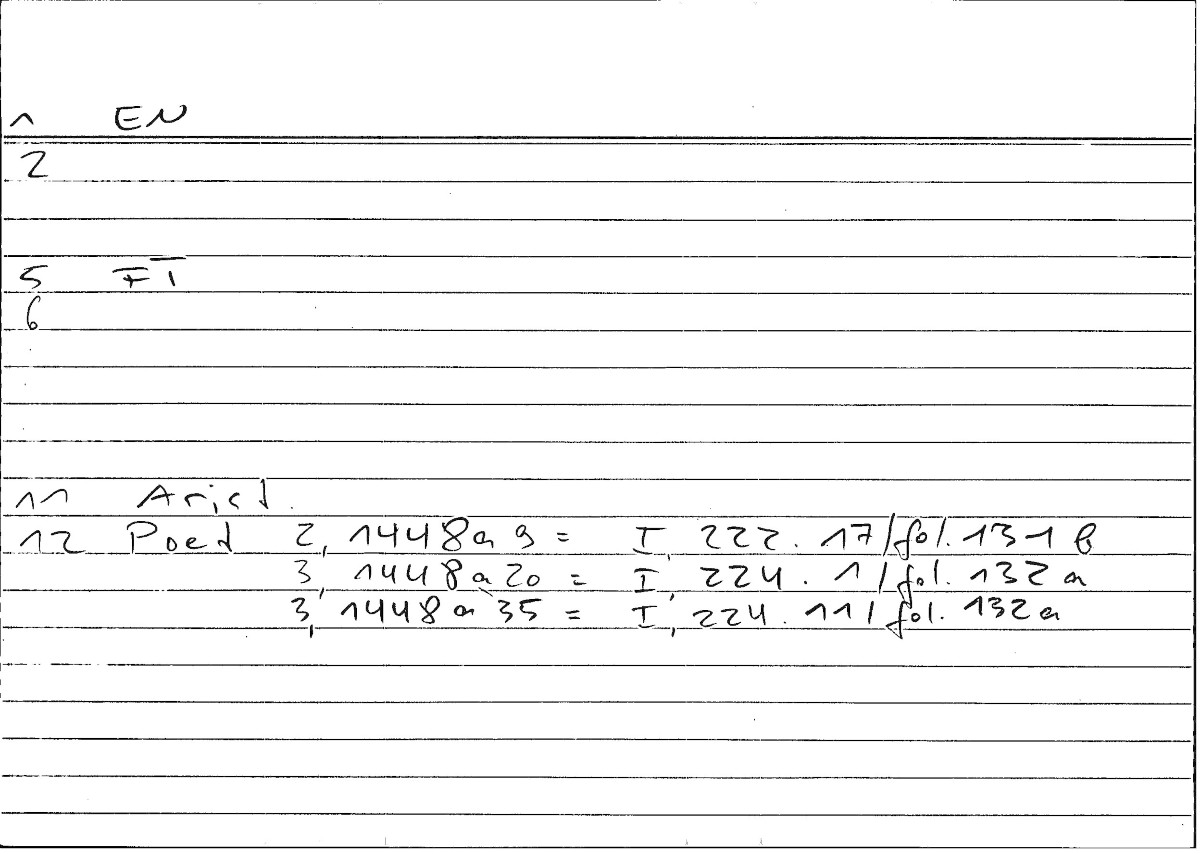 1 EN
2
5 FT
6
11 Arist.
12 Poet 2, 1448a9 = I, 222.17/fol. 131b
3, 1448a20 = I, 224.1/fol. 132a
3, 1448a35 = I, 224.11/fol. 132a